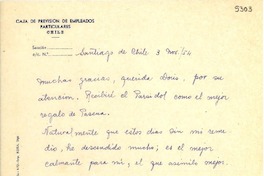 5303
CAJA DE PREVISION DE EMPLEADOS
PARTICULARES
CHILE
Sección
Santiago de Chile 3 Nov/54
Muchas gracias, querida Doris, por su
atencion. Recibiré el Paraidol como el mejor
regalo de Pascua.
Naturalmente que estos dias sin mi reme
dio, he descendido mucho; es el mejor
calmante para mi, el que asimilo mejor.